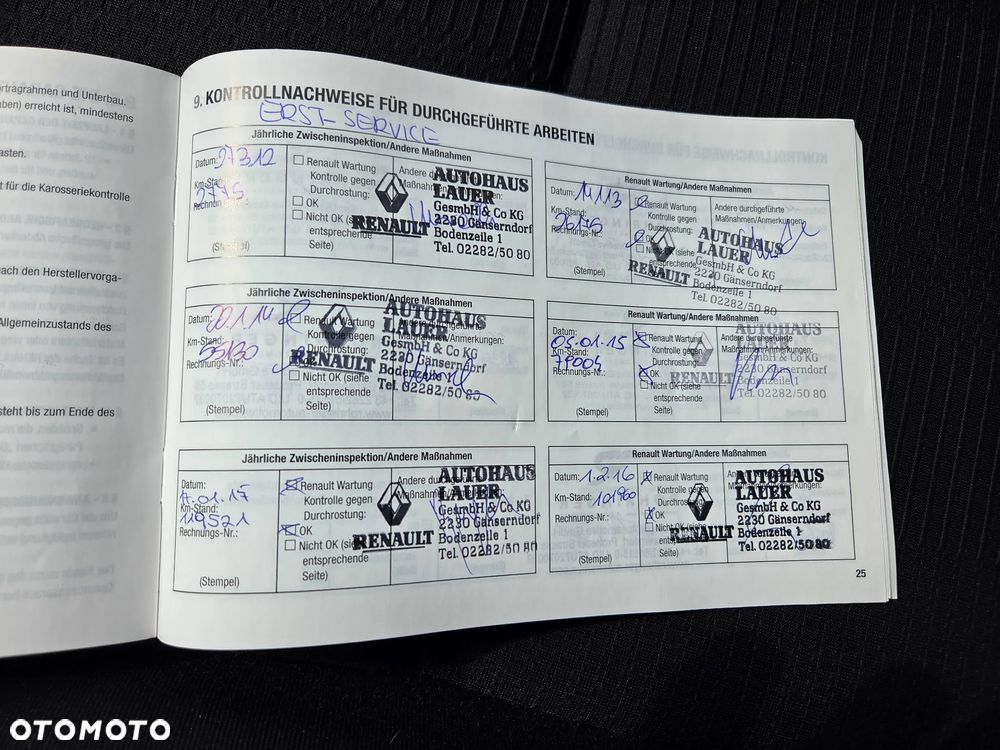 ortragrahmen und Unterbau.
aben) erreicht ist, mindestens
asten.
t für die Karosseriekontrolle
ach den Herstellervorga-
Allgemeinzustands des
steht bis zum Ende des
9. KONTROLLNACHWEISE FÜR DURCHGEFÜHRTE ARBEITEN
ERST-SERVICE
Jährliche Zwischeninspektion/Andere Maßnahmen
Datum: 27312
Km-Stand:
Rechnungs-Nr.:
(Stempel)
Renault Wartung
Kontrolle gegen
Durchrostung:
OK
Nicht OK (siehe
entsprechende
Seite)
RENAULT
AUTOHAUS
LAUER
GesmbH & Co KG
2230 Gänserndorf
Bodenzeile 1
Tel. 02282/50 80
Renault Wartung/Andere Maßnahmen
Datum: 14113
Km-Stand: 26175
Rechnungs-Nr.:
(Stempel)
Renault Wartung
Kontrolle gegen
Durchrostung:
Nicht OK (siehe
entsprechende
Andere durchgeführte
Maßnahmen/Anmerkungen:
RENAULT
AUTOHAUS
LAUER
GesmbH & Co KG
2230 Gänserndorf
Bodenzeile 1
Tel. 02282/50 80
Jährliche Zwischeninspektion/Andere Maßnahmen
Datum: 20.1.14
Km-Stand: 55130
Rechnungs-Nr.:
(Stempel)
Renault Wartung
Kontrolle gegen
Durchrostung:
Nicht OK (siehe
entsprechende
Seite)
RENAULT
AUTOHAUS
LAUER
GesmbH & Co KG
2230 Gänserndorf
Bodenzeile 1
Tel. 02282/50 80
Renault Wartung/Andere Maßnahmen
Datum: 05.01.15
Km-Stand:
Rechnungs-Nr.:
(Stempel)
Renault Wartung
Kontrolle gegen
Durchrostung:
OK
Nicht OK (siehe
entsprechende
Seite)
Andere durchgeführte
Maßnahmen/Anmerkungen:
RENAULT
AUTOHAUS
LAUER
GesmbH & Co KG
2230 Gänserndorf
Bodenzeile 1
Tel. 02282/50 80
Jährliche Zwischeninspektion/Andere Maßnahmen
Datum: 17.01.17
Km-Stand: 119521
Rechnungs-Nr.:
(Stempel)
Renault Wartung
Kontrolle gegen
Durchrostung:
OK
Nicht OK (siehe
entsprechende
Seite)
RENAULT
AUTOHAUS
LAUER
GesmbH & Co KG
2230 Gänserndorf
Bodenzeile 1
Tel. 02282/50 80
Renault Wartung/Andere Maßnahmen
Datum: 1.2.16
Km-Stand: 101900
Rechnungs-Nr.:
(Stempel)
Renault Wartung
Kontrolle gegen
Durchrostung:
OK
Nicht OK (siehe
entsprechende
Seite)
RENAULT
AUTOHAUS
LAUER
GesmbH & Co KG
2230 Gänserndorf
Bodenzeile 1
Tel. 02282/50 80
25
OTOMOTO